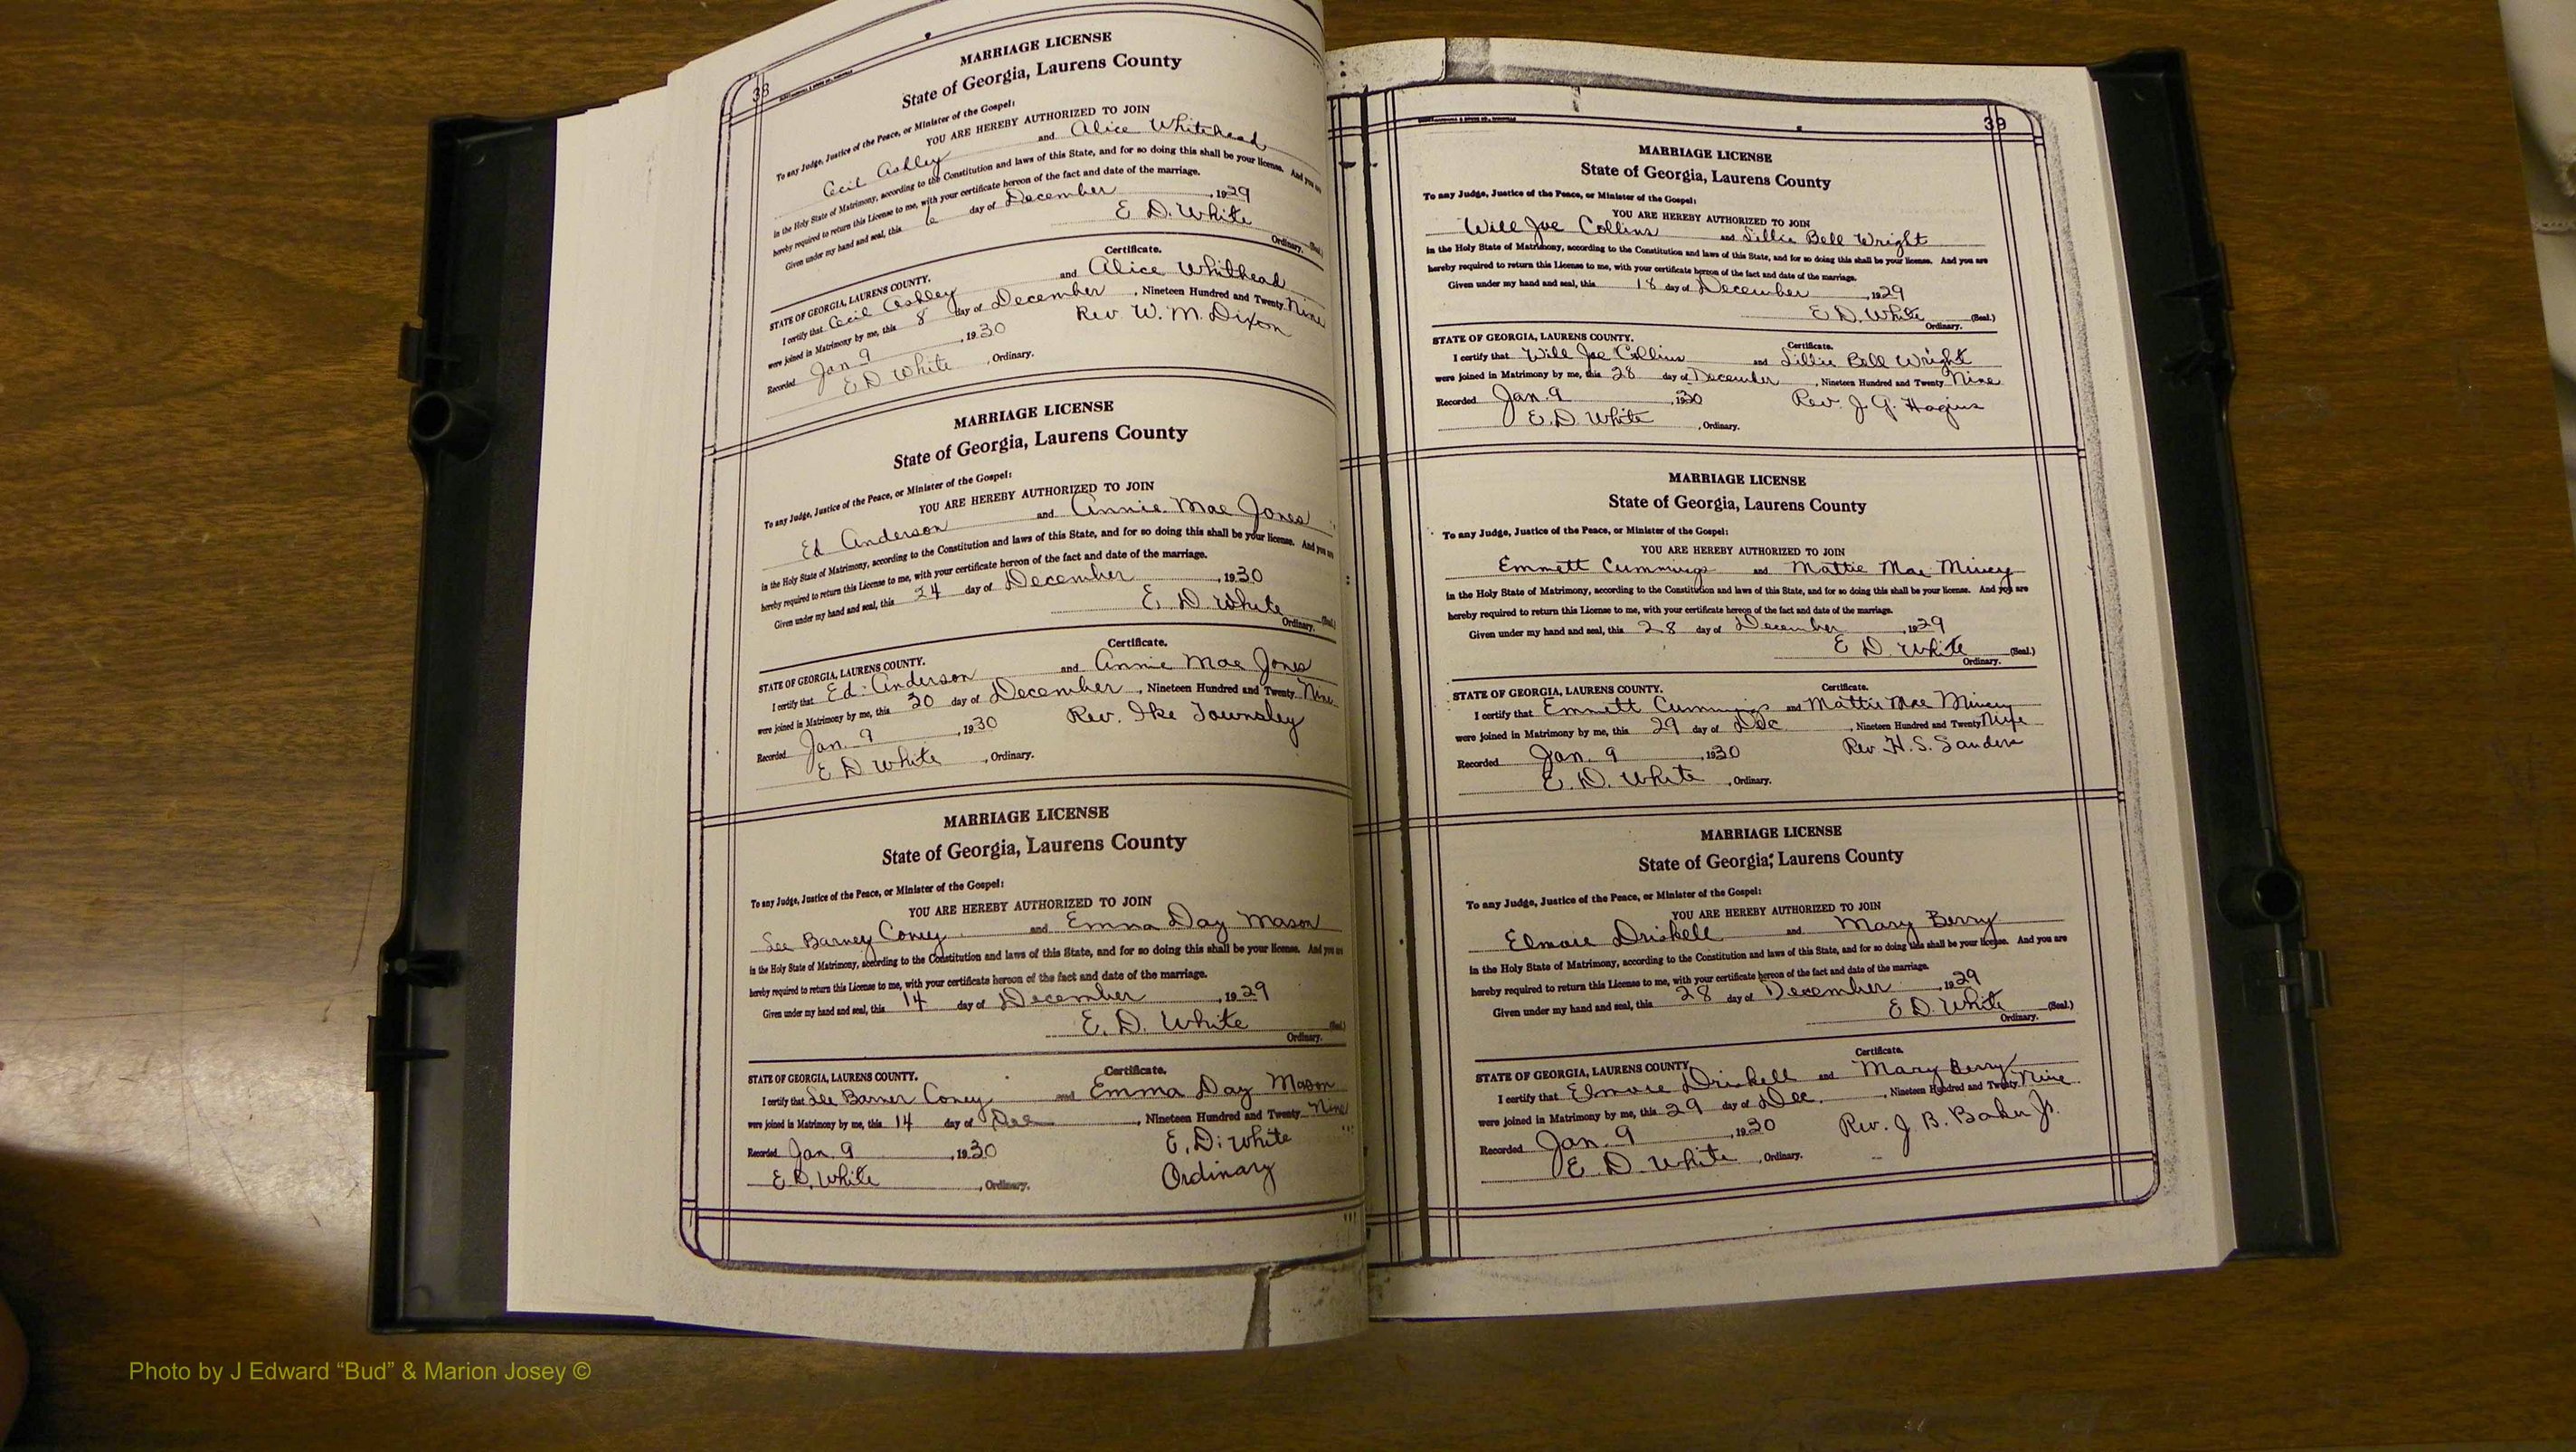 38
MARRIAGE LICENSE
State of Georgia, Laurens County
To any Judge, Justice of the Peace, or Minister of the Gospel:
YOU ARE HEREBY AUTHORIZED TO JOIN
Cecil Ashley and Alice Whitehead
in the Holy State of Matrimony, according to the Constitution and laws of this State, and for so doing this shall be your license. And you are
hereby required to return this License to me, with your certificate hereon of the fact and date of the marriage.
Given under my hand and seal, this 6 day of December, 1929
E D. White
Ordinary. (Seal.)
Certificate.
STATE OF GEORGIA, LAURENS COUNTY.
I certify that Cecil Ashley and Alice Whithead
were joined in Matrimony by me, this 8 day of December, Nineteen Hundred and Twenty Nine
Recorded Jan 9, 1930 Rev. W. M. Dixon
E D White, Ordinary.
MARRIAGE LICENSE
State of Georgia, Laurens County
To any Judge, Justice of the Peace, or Minister of the Gospel:
YOU ARE HEREBY AUTHORIZED TO JOIN
Ed Anderson and Annie Mae Jones
in the Holy State of Matrimony, according to the Constitution and laws of this State, and for so doing this shall be your license. And you are
hereby required to return this License to me, with your certificate hereon of the fact and date of the marriage.
Given under my hand and seal, this 24 day of December, 1930
E. D White
Ordinary. (Seal.)
Certificate.
STATE OF GEORGIA, LAURENS COUNTY.
I certify that Ed. Anderson and Annie Mae Jones
were joined in Matrimony by me, this 30 day of December, Nineteen Hundred and Twenty Nine
Recorded Jan. 9, 1930 Rev. Ike Townsley
E D White, Ordinary.
MARRIAGE LICENSE
State of Georgia, Laurens County
To any Judge, Justice of the Peace, or Minister of the Gospel:
YOU ARE HEREBY AUTHORIZED TO JOIN
Lee Barney Coney and Emma Day Mason
in the Holy State of Matrimony, according to the Constitution and laws of this State, and for so doing this shall be your license. And you are
hereby required to return this License to me, with your certificate hereon of the fact and date of the marriage.
Given under my hand and seal, this 14 day of December, 1929
E. D. White
(Seal.)
Ordinary.
Certificate.
STATE OF GEORGIA, LAURENS COUNTY.
I certify that Lee Barner Coney and Emma Day Mason
were joined in Matrimony by me, this 14 day of Dec, Nineteen Hundred and Twenty Nine
Recorded Jan. 9, 1930 E. D. White
E D. White, Ordinary. Ordinary
39
MARRIAGE LICENSE
State of Georgia, Laurens County
To any Judge, Justice of the Peace, or Minister of the Gospel:
YOU ARE HEREBY AUTHORIZED TO JOIN
Will Joe Collins and Lillie Bell Wright
in the Holy State of Matrimony, according to the Constitution and laws of this State, and for so doing this shall be your license. And you are
hereby required to return this License to me, with your certificate hereon of the fact and date of the marriage.
Given under my hand and seal, this 18 day of December, 1929
E D. White (Seal.)
Ordinary.
STATE OF GEORGIA, LAURENS COUNTY. Certificate.
I certify that Will Joe Collins and Lillie Bell Wright
were joined in Matrimony by me, this 28 day of December, Nineteen Hundred and Twenty Nine
Recorded Jan. 9, 1930 Rev. J. G. Hagins
E. D. White, Ordinary.
MARRIAGE LICENSE
State of Georgia, Laurens County
To any Judge, Justice of the Peace, or Minister of the Gospel:
YOU ARE HEREBY AUTHORIZED TO JOIN
Emmett Cummings and Mattie Mae Mincy
in the Holy State of Matrimony, according to the Constitution and laws of this State, and for so doing this shall be your license. And you are
hereby required to return this License to me, with your certificate hereon of the fact and date of the marriage.
Given under my hand and seal, this 28 day of December, 1929
E D. White (Seal.)
Ordinary.
STATE OF GEORGIA, LAURENS COUNTY. Certificate.
I certify that Emmett Cummings and Mattie Mae Mincey
were joined in Matrimony by me, this 29 day of Dec, Nineteen Hundred and Twenty Nine
Recorded Jan. 9, 1930 Rev. H. S. Sanders
E. D. White, Ordinary.
MARRIAGE LICENSE
State of Georgia, Laurens County
To any Judge, Justice of the Peace, or Minister of the Gospel:
YOU ARE HEREBY AUTHORIZED TO JOIN
Elmore Driskell and Mary Berry
in the Holy State of Matrimony, according to the Constitution and laws of this State, and for so doing this shall be your license. And you are
hereby required to return this License to me, with your certificate hereon of the fact and date of the marriage.
Given under my hand and seal, this 28 day of December, 1929
E D. White (Seal.)
Ordinary.
Certificate.
STATE OF GEORGIA, LAURENS COUNTY.
I certify that Elmore Driskell and Mary Berry
were joined in Matrimony by me, this 29 day of Dec., Nineteen Hundred and Twenty Nine
Recorded Jan. 9, 1930 Rev. J. B. Baker Jr.
E. D. White, Ordinary.
Photo by J Edward “Bud” & Marion Josey ©